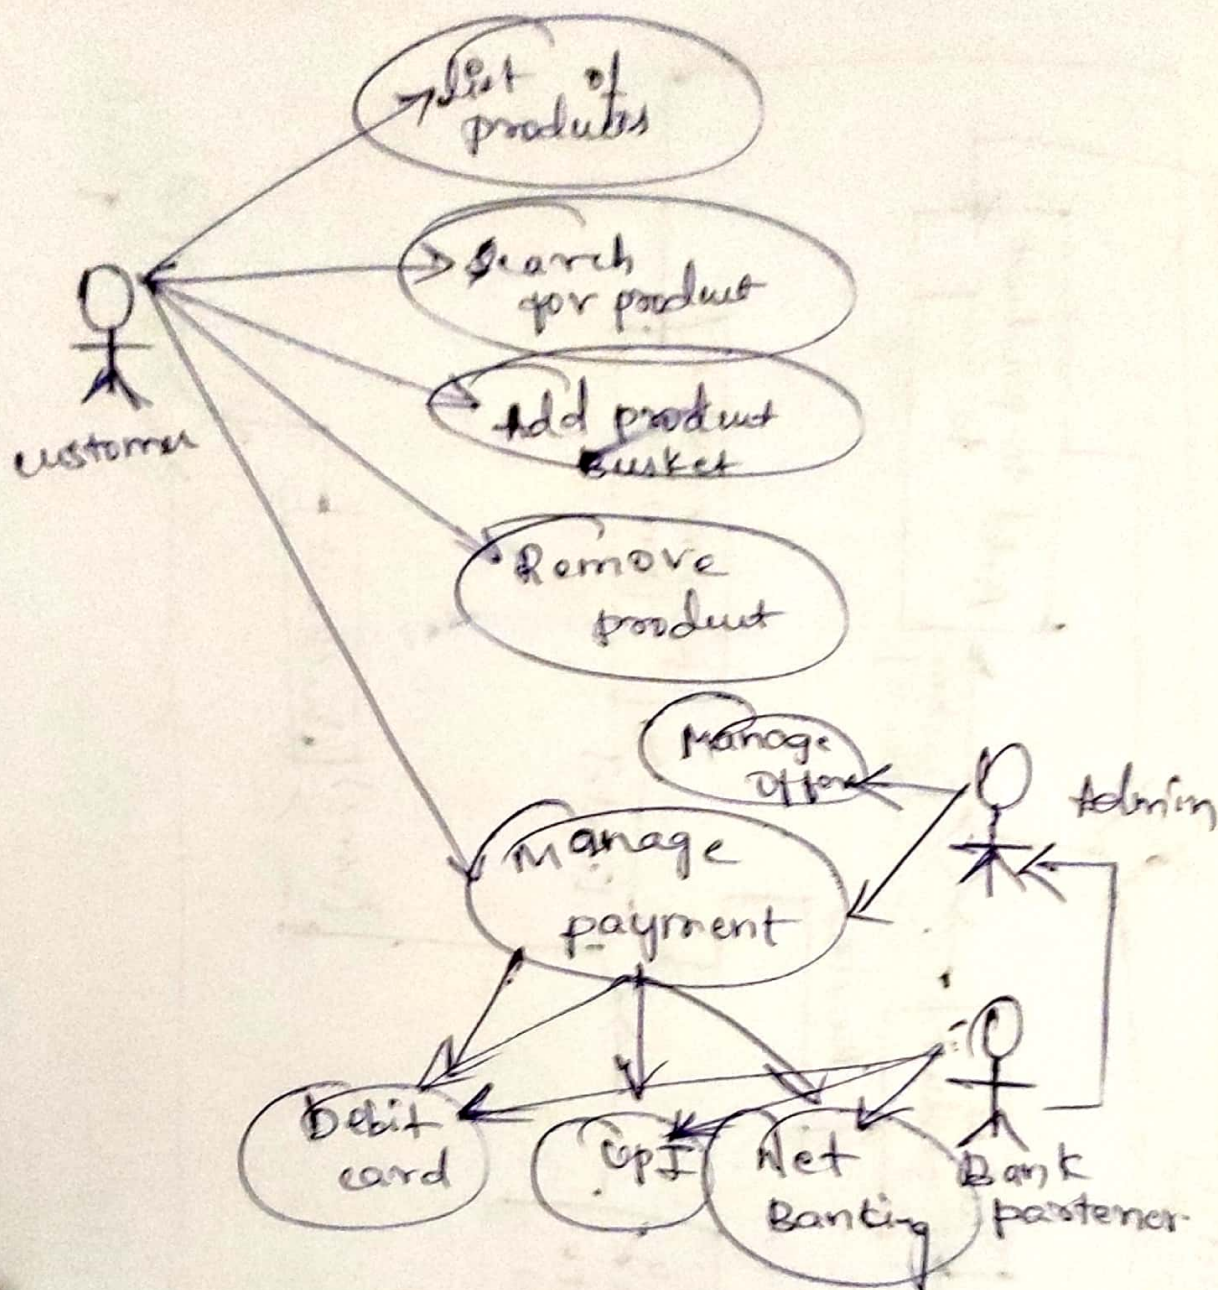 List of
products
Search
for product
Add product
Busket
Remove
product
customer
Manage
Offers
Admin
Manage
payment
Debit
card
UPI
Net
Banking
Bank
partener